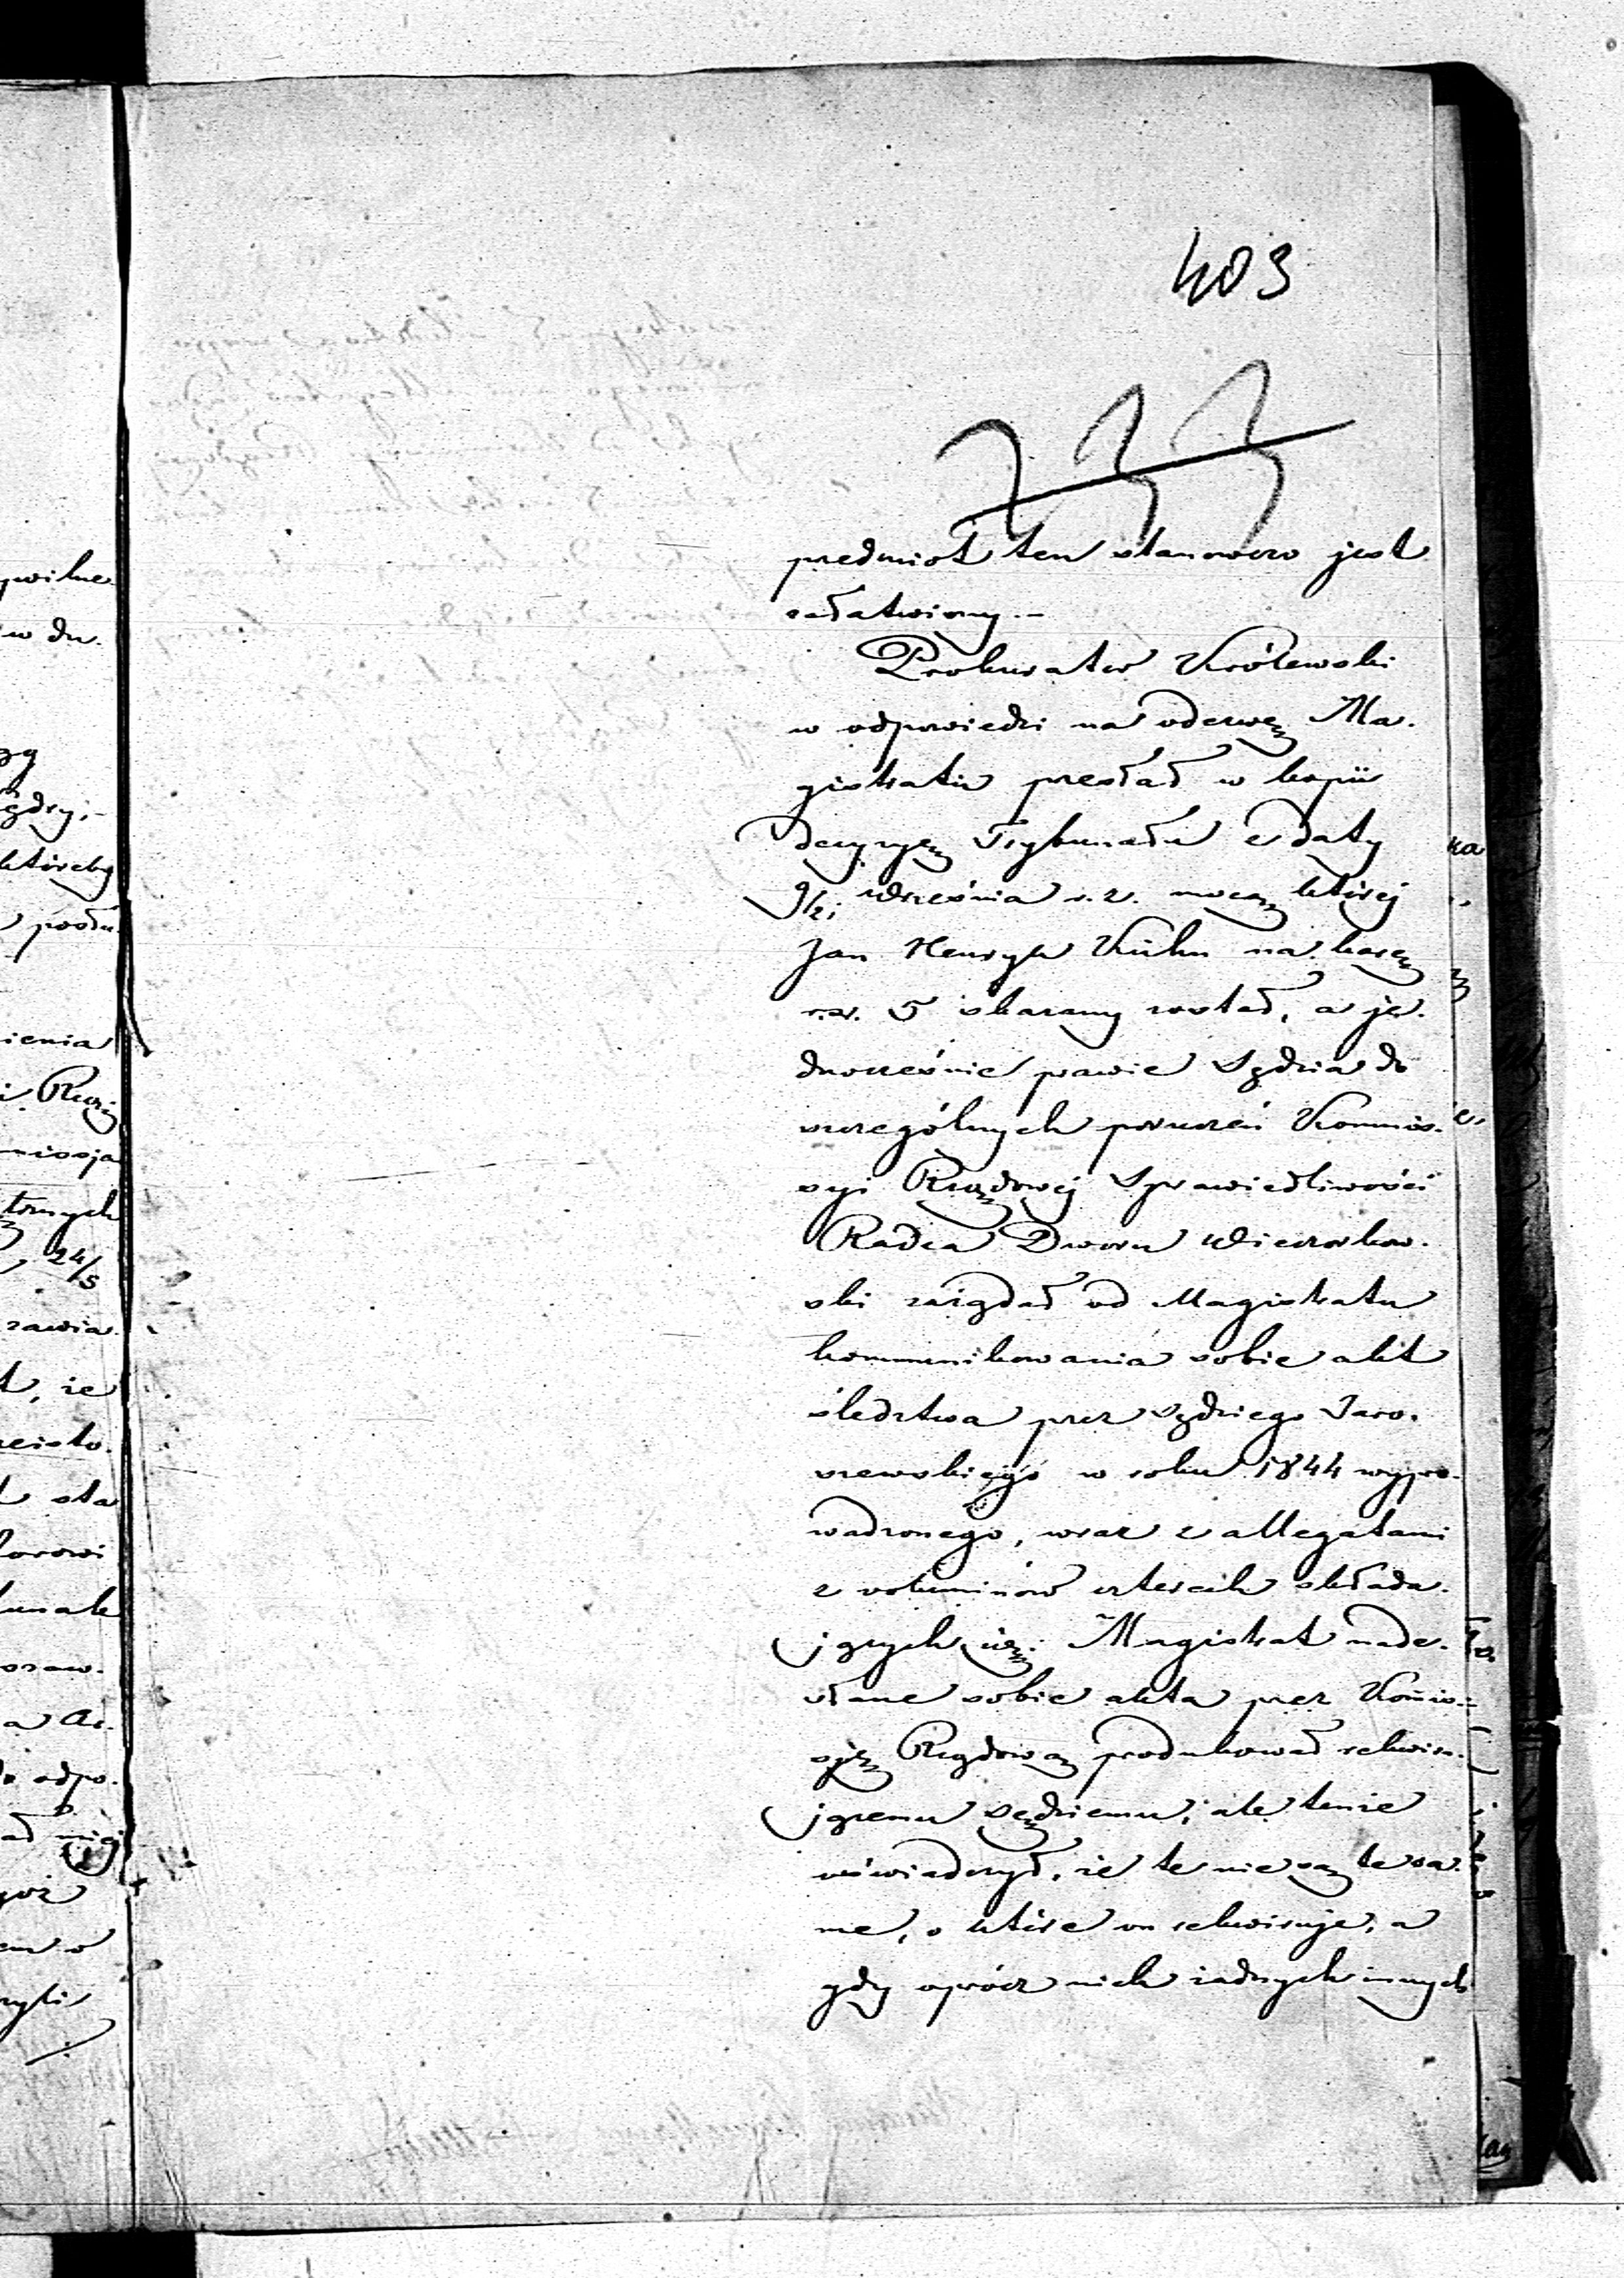 403
733
predmiot ten stanowczo jest
załatwiony.–
Prokurator Królewski
w odpowiedzi na odezwę Ma-
gistratu przesłał w kopii
decyzyę Trybunału z daty
9/21 Września r. z. mocą której
Jan Henryk Kühn na karę
r.sr. 5 skazany został, a je-
dnocześnie prawie Sędzia do
szczególnych poruczeń Kommis-
syi Rządowej Sprawiedliwości
Radca Dworu Wieczorkow-
ski zażądał od Magistratu
kommunikowania sobie akt
śledztwa przez Sędziego Jaro-
szewskiego w roku 1844 wypro-
wadzonego, wraz z allegatami
z voluminów czterech składa-
jących się. Magistrat nade-
słane sobie akta przez Komis-
sję Rządową produkował rekwiru-
jącemu Sędziemu; ale tenże
oświadczył, że te nie są te sa-
me, o które on rekwiruje, a
gdy oprócz nich żadnych innych
pwilne
w du.
które by
posłu-
ienia
i Rząd
missja
tornych
24/5
zawia-
t, że
sta
unale
odpo-